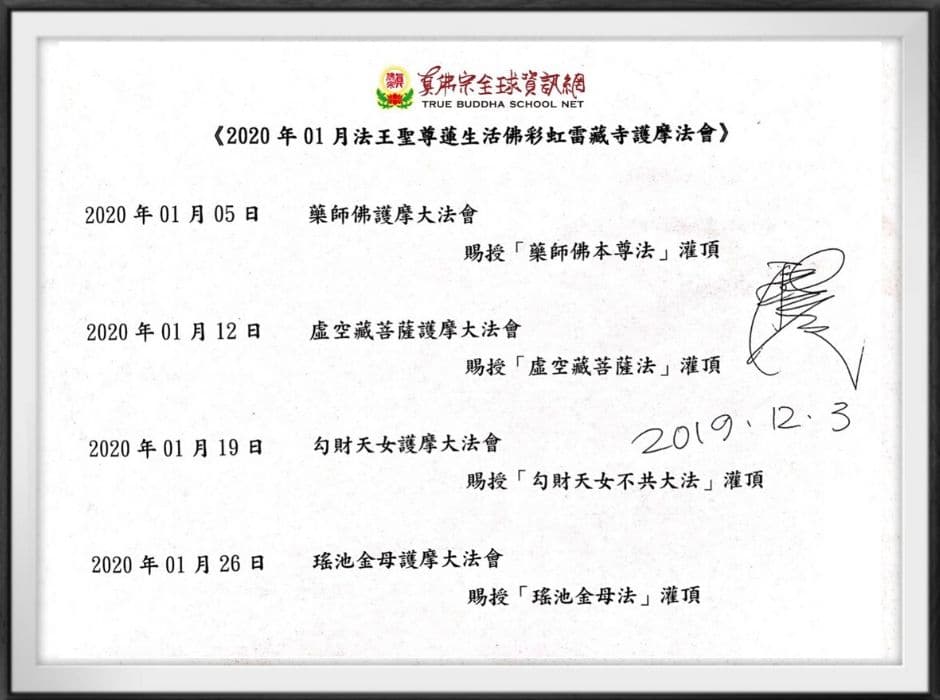 真佛宗全球資訊網
TRUE BUDDHA SCHOOL NET
《2020 年 01 月法王聖尊蓮生活佛彩虹雷藏寺護摩法會》
2020 年 01 月 05 日 藥師佛護摩大法會
賜授「藥師佛本尊法」灌頂
2020 年 01 月 12 日 虛空藏菩薩護摩大法會
賜授「虛空藏菩薩法」灌頂
2019.12.3
2020 年 01 月 19 日 勾財天女護摩大法會
賜授「勾財天女不共大法」灌頂
2020 年 01 月 26 日 瑤池金母護摩大法會
賜授「瑤池金母法」灌頂